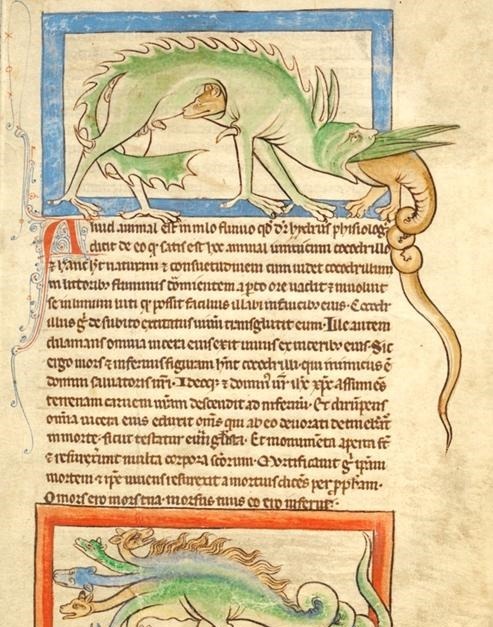 Aliud animal est in nilo fluuio qd dr hydrus phisiolog
dicit de eo q satis est hoc animal inimicum cocodrillo
⁊ hanc ht naturam ⁊ consuetudinem cum uidet cocodrillum
in littorib fluminis dormientem aperto ore uadit ⁊ inuoluit
se in limum luti q possit facilius illabi in faucib eius. Cocodr
illus g de subito excitatus uiuum transglutit eum. Ille autem
dilanians omnia uiscera eius exit uiuus ex uiscerib eius. Sic
ergo mors ⁊ infernus figuram hnt cocodrilli. qui inimicus ē
domini saluatoris nri. Ideoq ⁊ domin nr ihc xpc assumens
terrenam carnem nram descendit ad infernū. Et dirumpens
omīa uiscera eius eduxit omīs qui ab eo deuorati detinebant
in morte. sicut testatur euūglista. Et monumēta aperta st
⁊ resurrexerunt multa corpora scorum. Mortificauit g ipam
mortem ⁊ ipe uiuens resurrexit a mortuis dicens per ppham.
O mors ero mors tua. morsus tuus ero inferne.